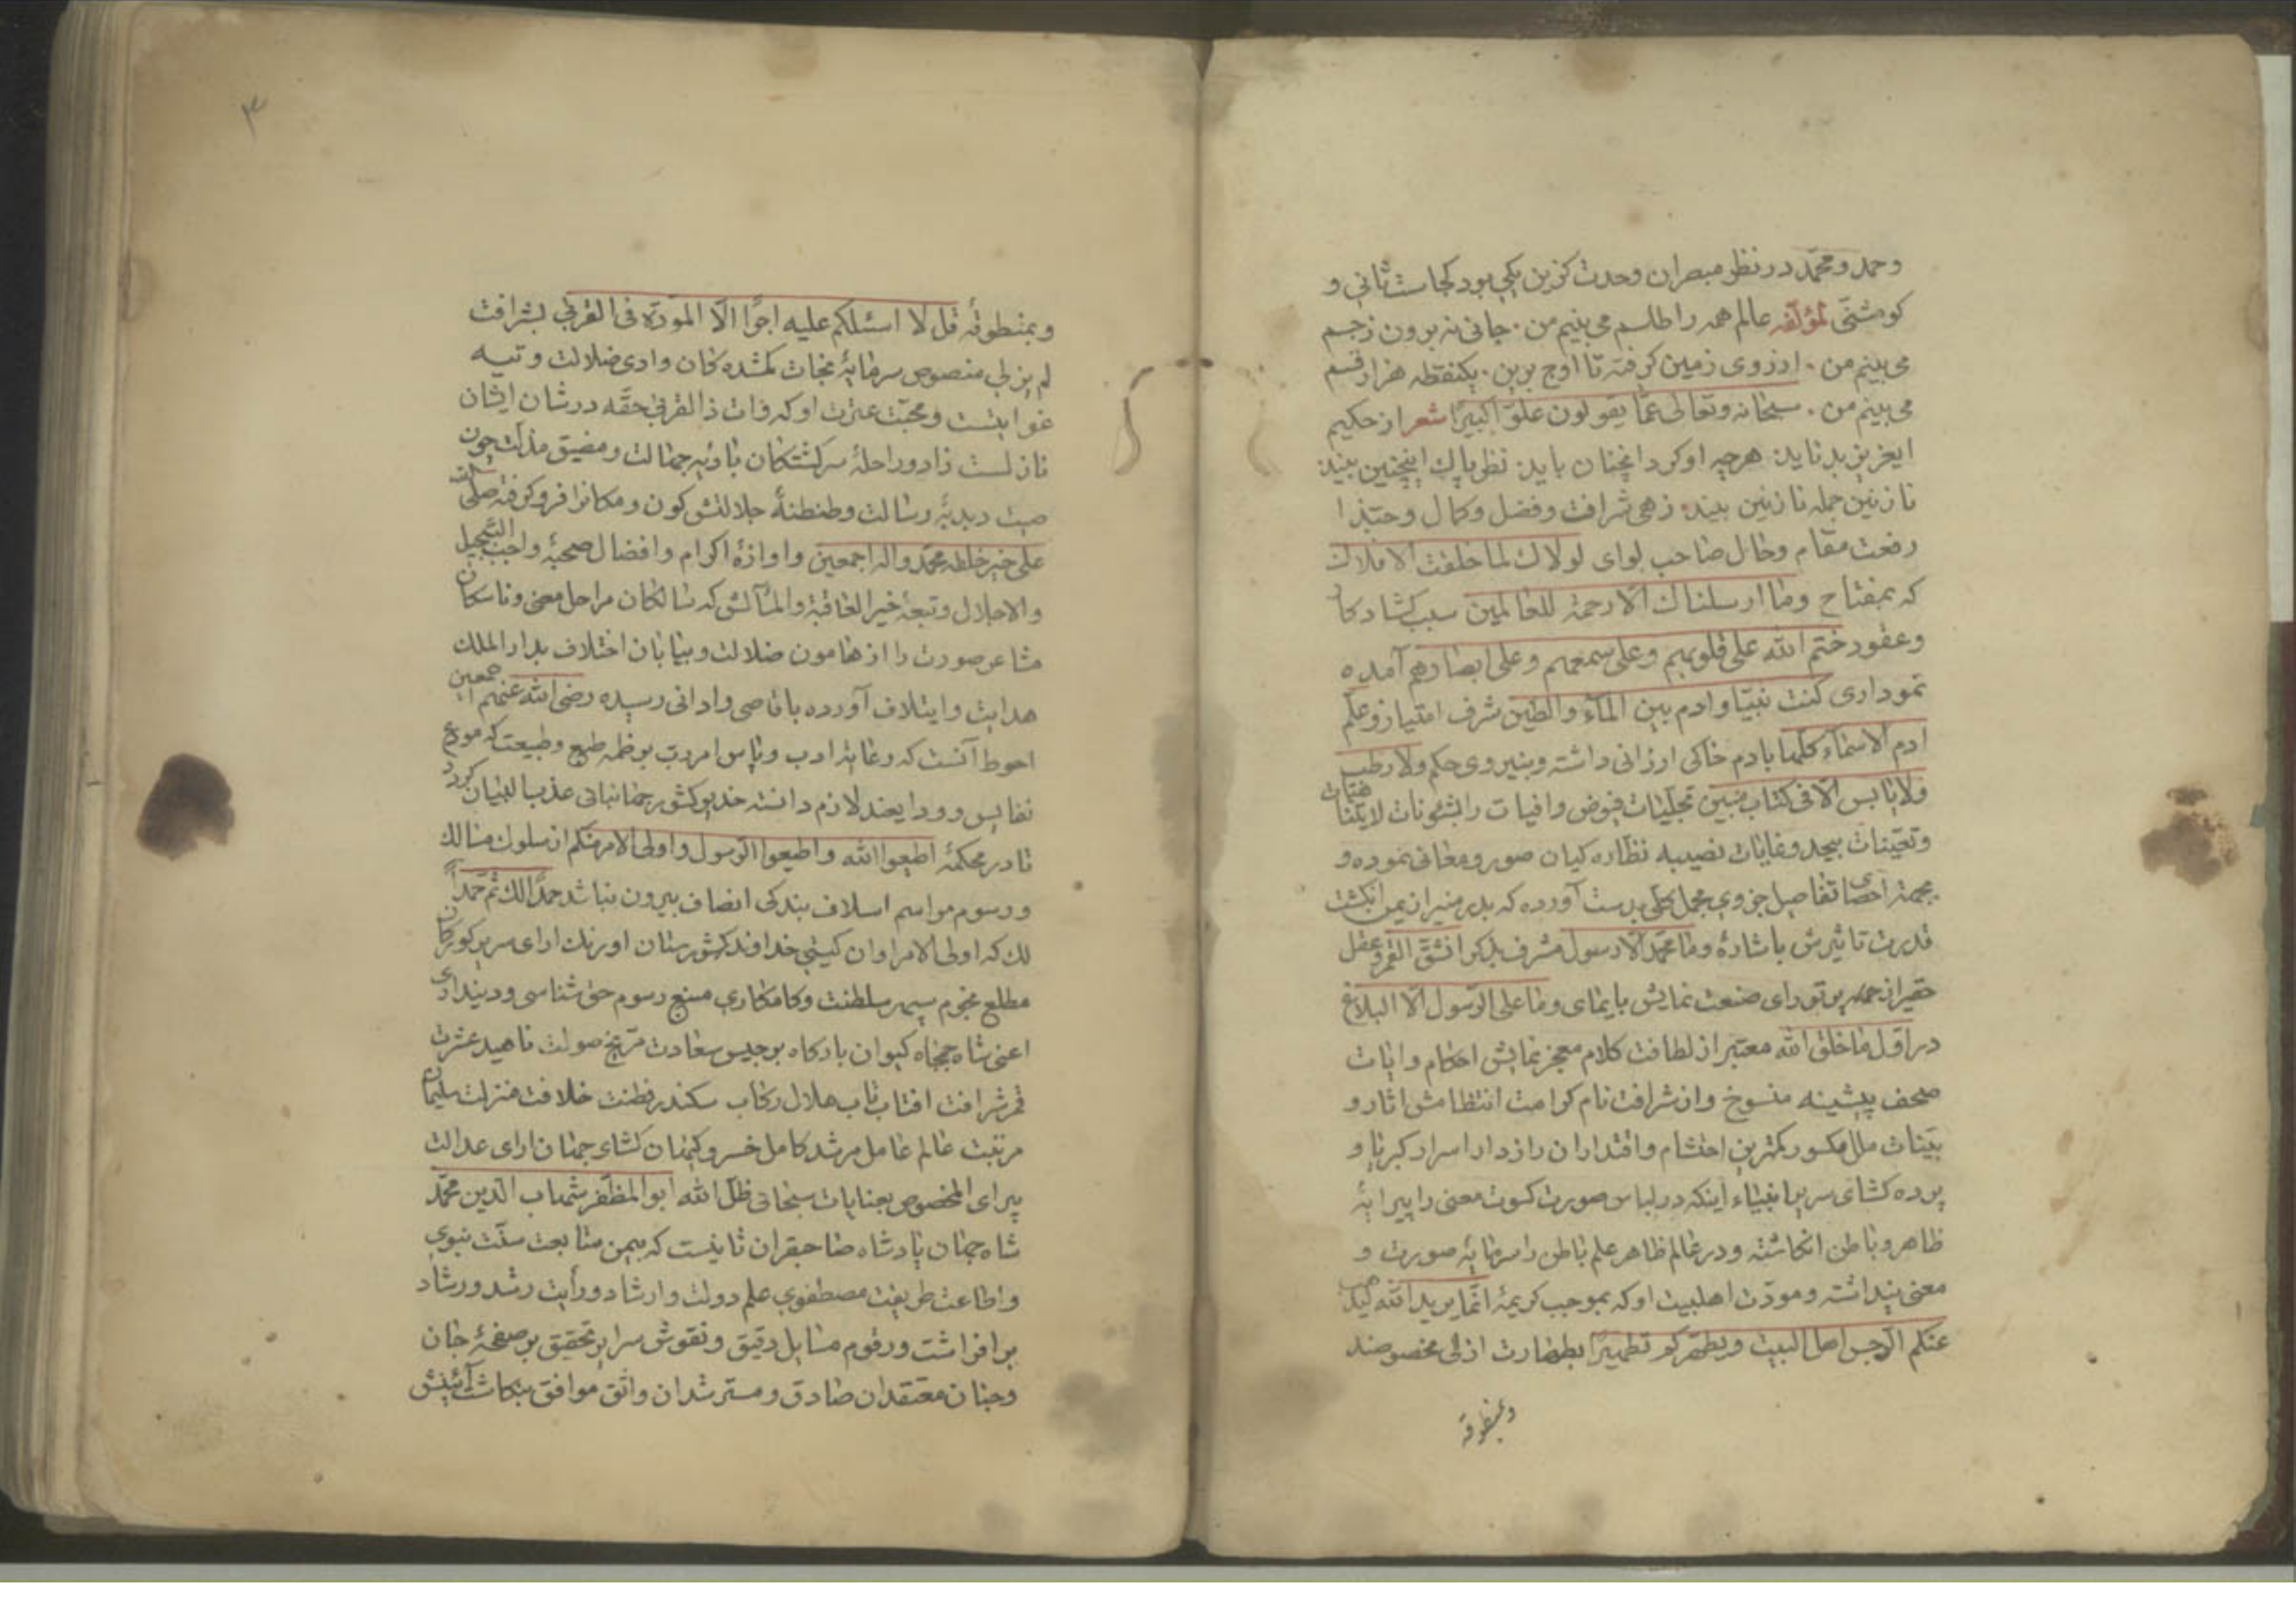 وحمد ومحمد در نظر مبصران وحدت کزین یکی بود کجاست ثانی و
کو مثنی لمؤلفه عالم همه را طلسم می بینم من . جانی نه برون زجسم
می بینم من . از روی زمین کرفته تا اوج برین . یکنقطه هزار قسم
می بینم من . سبحانه وتعالی عما یقولون علوّا کبیرا شعر از حکیم
ایعزیز بد ناید هرچه او کرد انچنان باید نظر پاك اینچنین بیند
نازنین جمله نازنین بیند زهی شرافت وفضل وکمال وحبّذا
رفعت مقام وحال صاحب لوای لولاك لما خلقت الافلاك
که بمفتاح وما ارسلناك الّا رحمة للعالمین سبب کشاد کار
وعقود ختم الله علی قلوبهم وعلی سمعهم وعلی ابصارهم آمده
نموداری کنت نبیّا وادم بین المآء والطین شرف امتیاز وعلّم
ادم الاسمآء کلّها بادم خاکی ارزانی داشته وبنیروی حکم ولا رطب
ولا یابس الّا فی کتاب مبین تجلّیات فیوض وافیات را بشئونات لایتناهیات
وتعیّنات بیحد وغایات نصیبه نظاره کیان صور ومعانی نموده و
بجهة احصای تفاصیل جزوی مجمل کلّی بدست آورده که بدر منیر از یمن انکشت
قدرت تاثیرش باشارۀ وما محمّد الّا رسول مشرف بذکر انشقّ القمر وعقل
حقیر از جمله پرتو رای صنعت نمایش بایمای وما علی الرّسول الّا البلاغ
در اوّل ما خلق الله معتبر از لطافت کلام معجز نمایش احکام وایات
صحف پیشینه منسوخ واز شرافت نام کرامت انتظامش اثار و
بیّنات ملل مکسور بهترین احتشام واقتداران رازدار اسرار کبریا و
پرده کشای سریر انبیاء اینکه در لباس صورت کسوت معنی را پیرایۀ
ظاهر وباطن انکاشته ودر عالم ظاهر علم باطن را سرمایۀ صورت و
معنی پنداشته ومودّت اهلبیت او که بموجب کریمۀ انّما یرید الله لیذهب
عنکم الرّجس اهل البیت ویطهّرکم تطهیرا بطهارت ازلی مخصوصند
وبمنطوقه
۳
وبمنطوقۀ قل لا اسئلکم علیه اجرًا الّا المودّة فی القربی بشرافت
لم یزلی منصوص سرمایۀ نجات کمشده کان وادی ضلالت وتیه
غوایتست ومحبّت عترت او که وات ذا القربی حقّه در شان ایشان
نازلست زاد وراحلۀ سرکشتکان بادیۀ جهالت ومضیق مذلّت چون
صیت دبدبۀ رسالت وطنطنۀ جلالتش کون ومکانرا فرو کرفته صلی الله
علی خیر خلقه محمّد واله اجمعین واوازۀ اکرام وافضال صحبۀ واجب التّبجیل
والاجلال وتبعۀ خیر العاقبة والمآلش که سالکان مراحل معنی وناسکان
مشاعر صورت را از هامون ضلالت وبیابان اختلاف بدار الملك
هدایت وایتلاف آورده باقاصی وادانی رسیده رضی الله عنهم اجمعین
احوط آنست که رعایة ادب وپاس امرت بر ذمۀ طبع وطبیعت که مودع
نفایس وودایعند لازم دانسته خدیو کشور جهانبانی عذب البنیان کردد
تا در محکمۀ اطیعوا الله واطیعوا الرّسول واولی الامر منکم از سلوك مسالك
ورسوم مراسم اسلاف بندکی انصاف بیرون نباشد حمدًا لك ثم حمدًا
لك که اولی الامر اوان کیتی خداوند کشورستان اورنك ارای سریر کورکان
مطلع نجوم سپهر سلطنت وکامکاری منبع رسوم حق شناسی ودینداری
اعنی شاه جمجاه کیوان بارکاه برجیس سعادت مرّیخ صولت ناهید عشرت
قمر شرافت افتاب تاب هلال رکاب سکندر فطنت خلافت منزلت سلیمان
مرتبت عالم عامل مرشد کامل خسرو کیهان کشای جهان ارای عدالت
پیرای المخصوص بعنایات سبحانی ظلّ الله ابو المظفّر شهاب الدین محمّد
شاه جهان پادشاه صاحبقران ثانیست که بیمن متابعت سنّت نبوی
واطاعت طریقت مصطفوی علم دولت وارشاد ورایت رشد ورشاد
برافراشت ورقوم مسایل دقیق ونقوش سرایر تحقیق بر صفحۀ جان
وجنان معتقدان صادق ومسترشدان واثق موافق بنکاشت